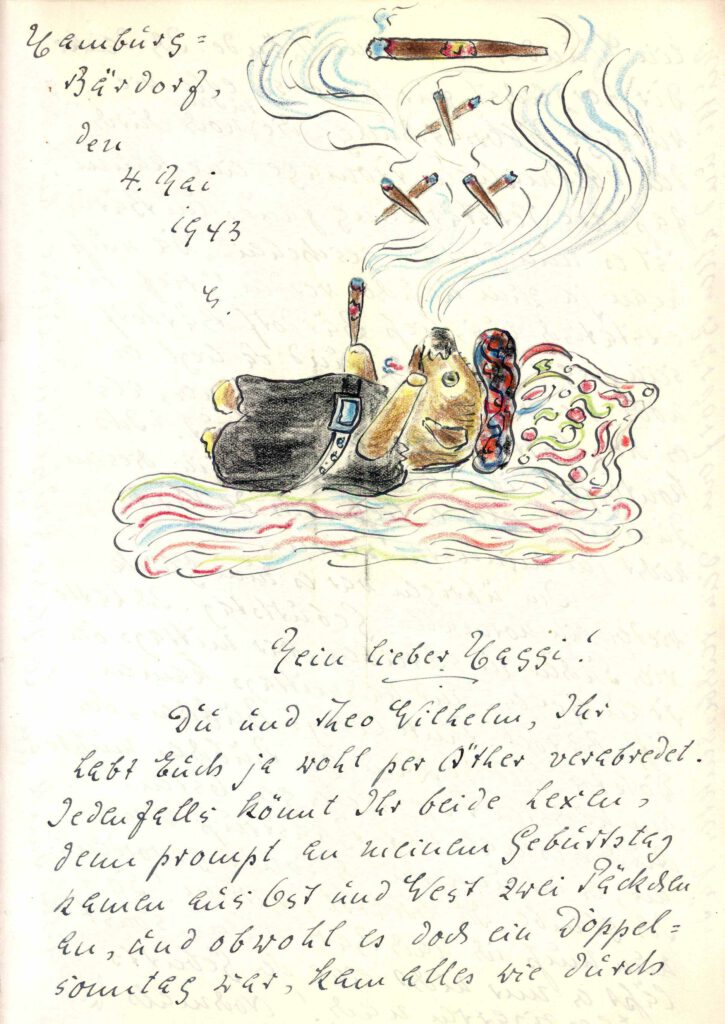 Hamburg=
Bärdorf,
den
4. Mai
1943
Mein lieber Maggi!
Du und Theo Wilhelm, Ihr
habt Euch ja wohl per Äther verabredet.
Jedenfalls könnt Ihr beide hexen,
denn prompt an meinem Geburtstag
kamen aus Ost und West zwei Päckchen
an, und obwohl es doch ein Doppel=
sonntag war, kam alles wie durch